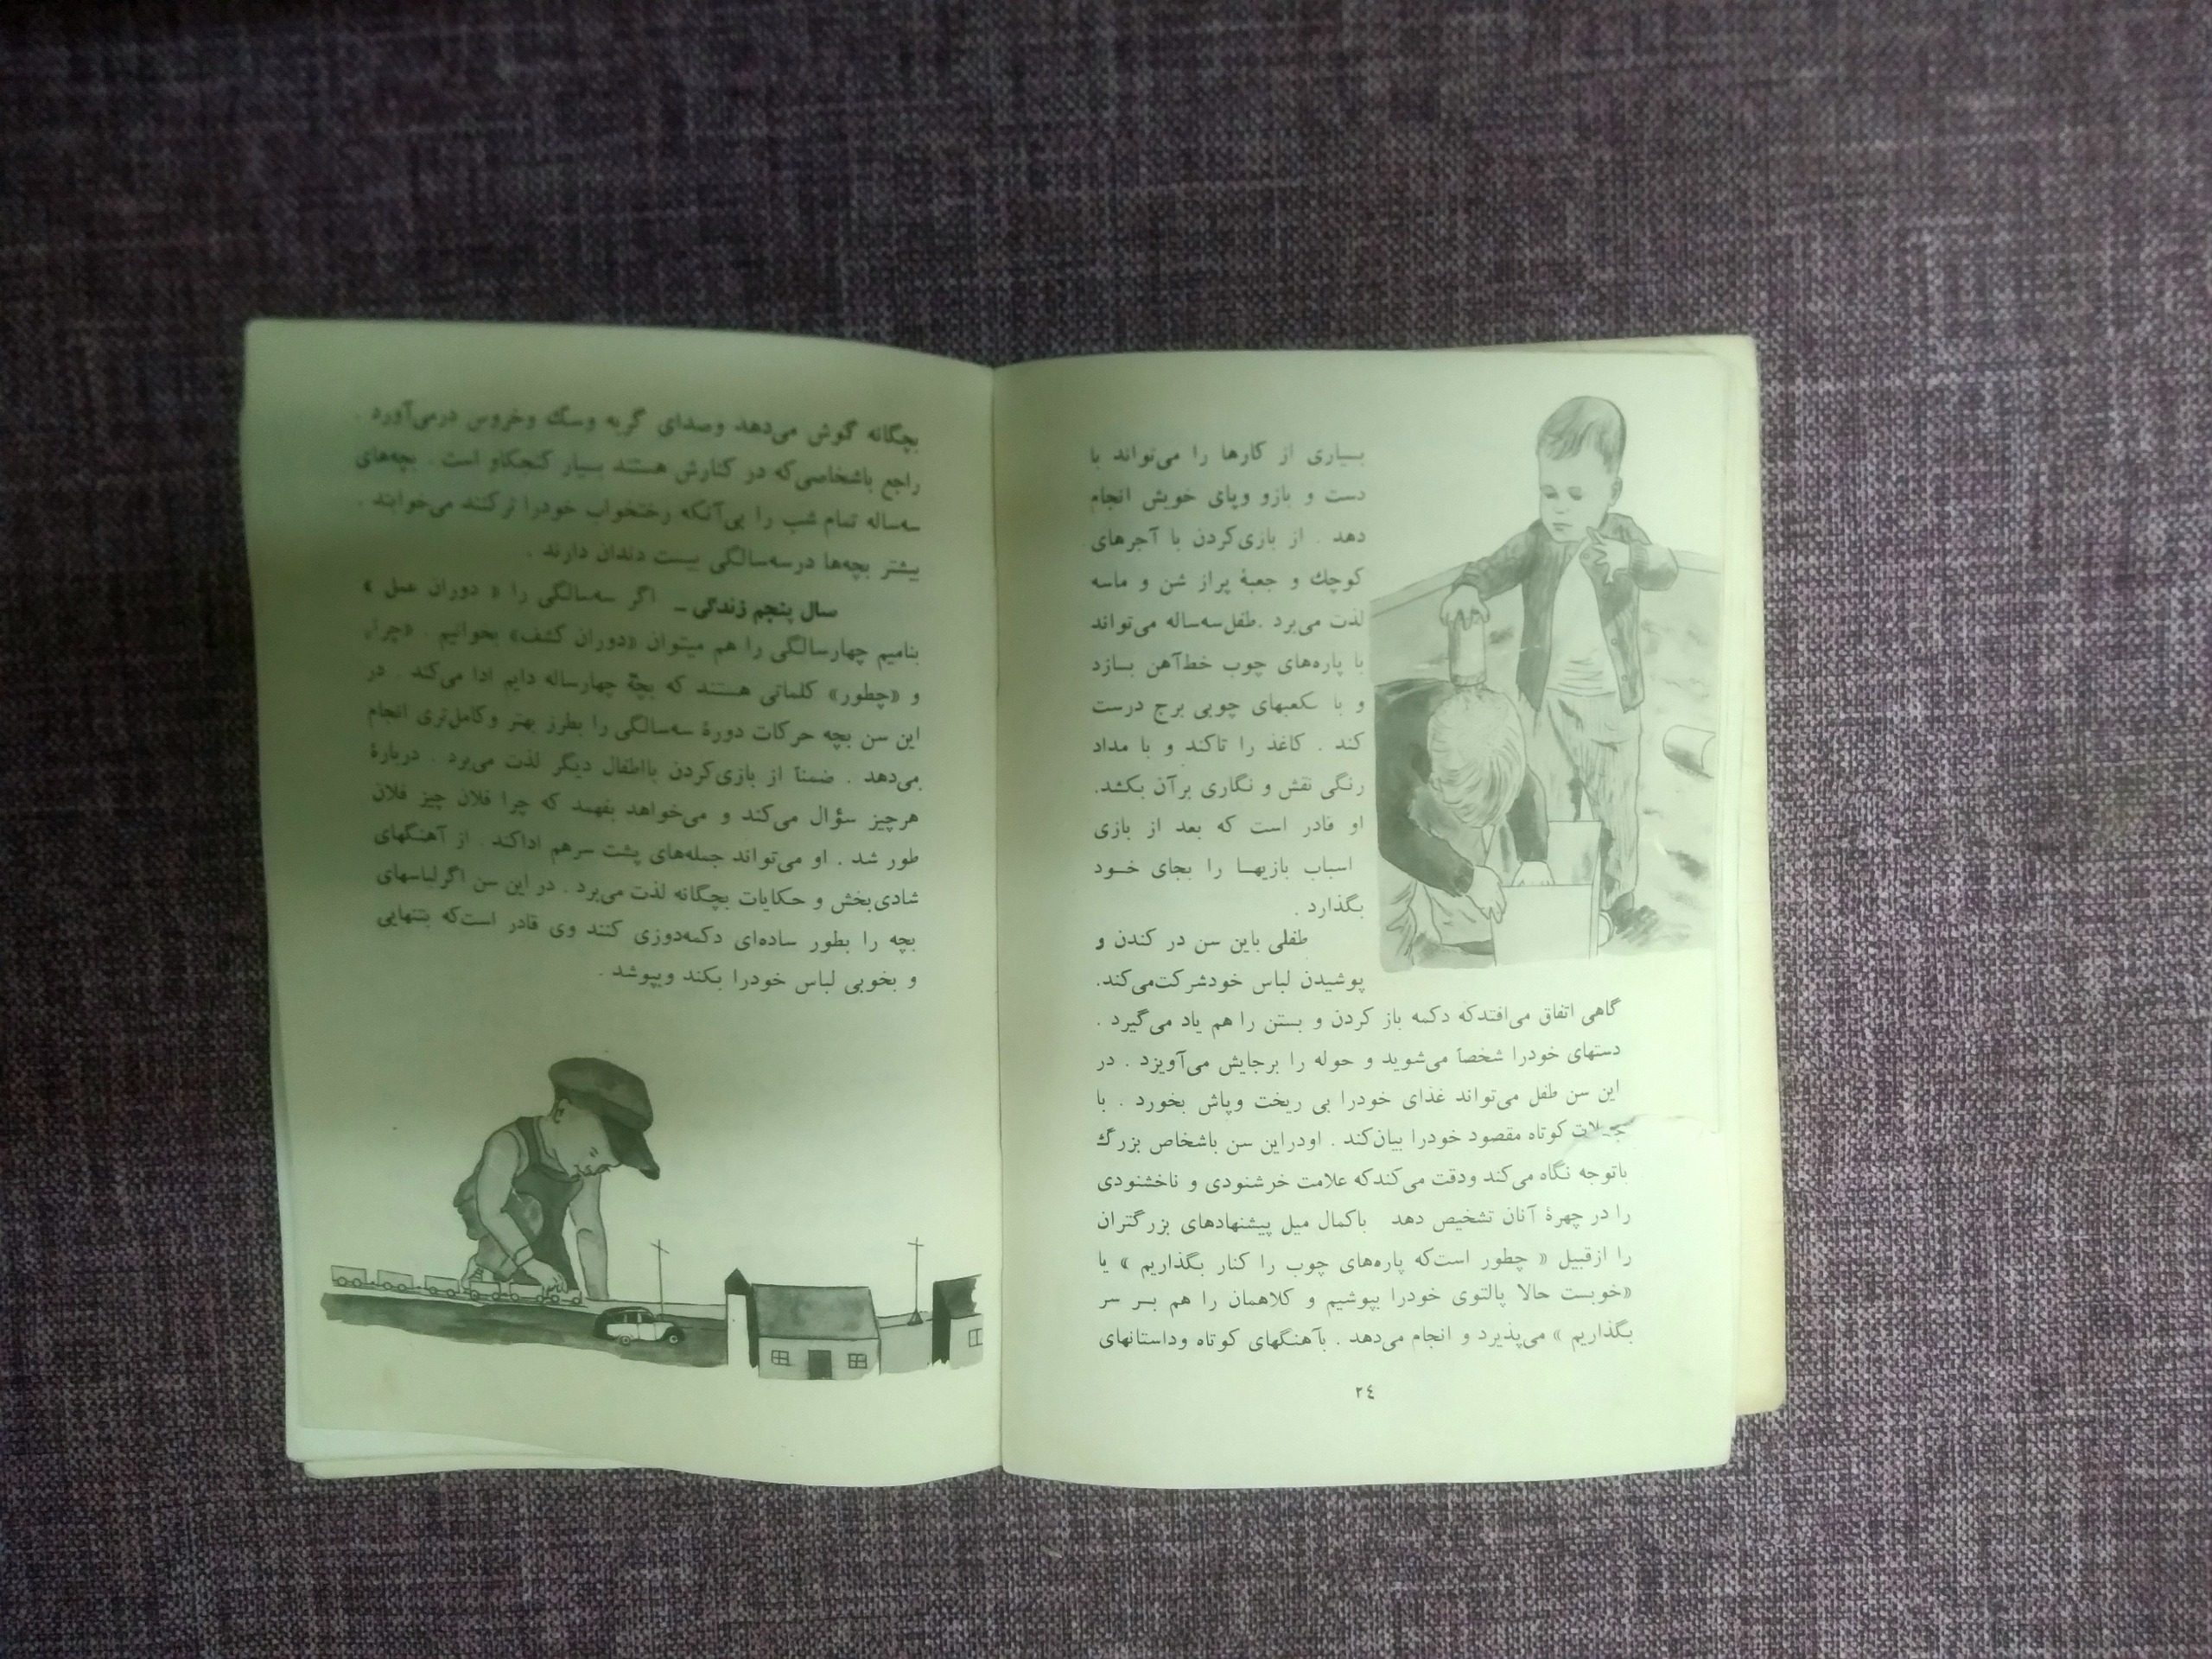 بسیاری از کارها را می‌تواند با
دست و بازو وپای خویش انجام
دهد . از بازی‌کردن با آجرهای
کوچك و جعبهٔ پراز شن و ماسه
لذت می‌برد .طفل‌سه‌ساله می‌تواند
با پاره‌های چوب خط‌آهن بسازد
و با مکعبهای چوبی برج درست
کند . کاغذ را تاکند و با مداد
رنگی نقش و نگاری برآن بکشد.
او قادر است که بعد از بازی
اسباب بازیهـا را بجای خـود
بگذارد .
طفلی باین سن در کندن و
پوشیدن لباس خودشرکت‌می‌کند.
گاهی اتفاق می‌افتدکه دکمه باز کردن و بستن را هم یاد می‌گیرد .
دستهای خودرا شخصاً می‌شوید و حوله را برجایش می‌آویزد . در
این سن طفل می‌تواند غذای خودرا بی ریخت وپاش بخورد . با
جملات کوتاه مقصود خودرا بیان‌کند . اودراین سن باشخاص بزرگ
باتوجه نگاه می‌کند ودقت می‌کندکه علامت خرشنودی و ناخشنودی
را در چهرهٔ آنان تشخیص دهد باکمال میل پیشنهادهای بزرگتران
را ازقبیل « چطور است‌که پاره‌های چوب را کنار بگذاریم » یا
«خوبست حالا پالتوی خودرا بپوشیم و کلاهمان را هم بـر سر
بگذاریم » می‌پذیرد و انجام می‌دهد . بآهنگهای کوتاه وداستانهای
٢٤
بچگانه گوش می‌دهد وصدای گربه وسگ وخروس درمی‌آورد .
راجع باشخاصی‌که در کنارش هستند بسیار کنجکاو است . بچه‌های
سه‌ساله تمام شب را بی‌آنکه رختخواب خودرا ترکنند می‌خوابند .
بیشتر بچه‌ها درسه‌سالگی بیست دندان دارند .
سال پنجم زندگی ـ اگر سه‌سالگی را « دوران عمل »
بنامیم چهارسالگی را هم میتوان «دوران کشف» بخوانیم . «چرا»
و «چطور» کلماتی هستند که بچهٔ چهارساله دایم ادا می‌کند . در
این سن بچه حرکات دورهٔ سه‌سالگی را بطرز بهتر وکامل‌تری انجام
می‌دهد . ضمناً از بازی‌کردن بااطفال دیگر لذت می‌برد . دربارهٔ
هرچیز سؤال می‌کند و می‌خواهد بفهمد که چرا فلان چیز فلان
طور شد . او می‌تواند جمله‌های پشت سرهم اداکند . از آهنگهای
شادی‌بخش و حکایات بچگانه لذت می‌برد . در این سن اگرلباسهای
بچه را بطور ساده‌ای دکمه‌دوزی کنند وی قادر است‌که بتنهایی
و بخوبی لباس خودرا بکند وبپوشد .